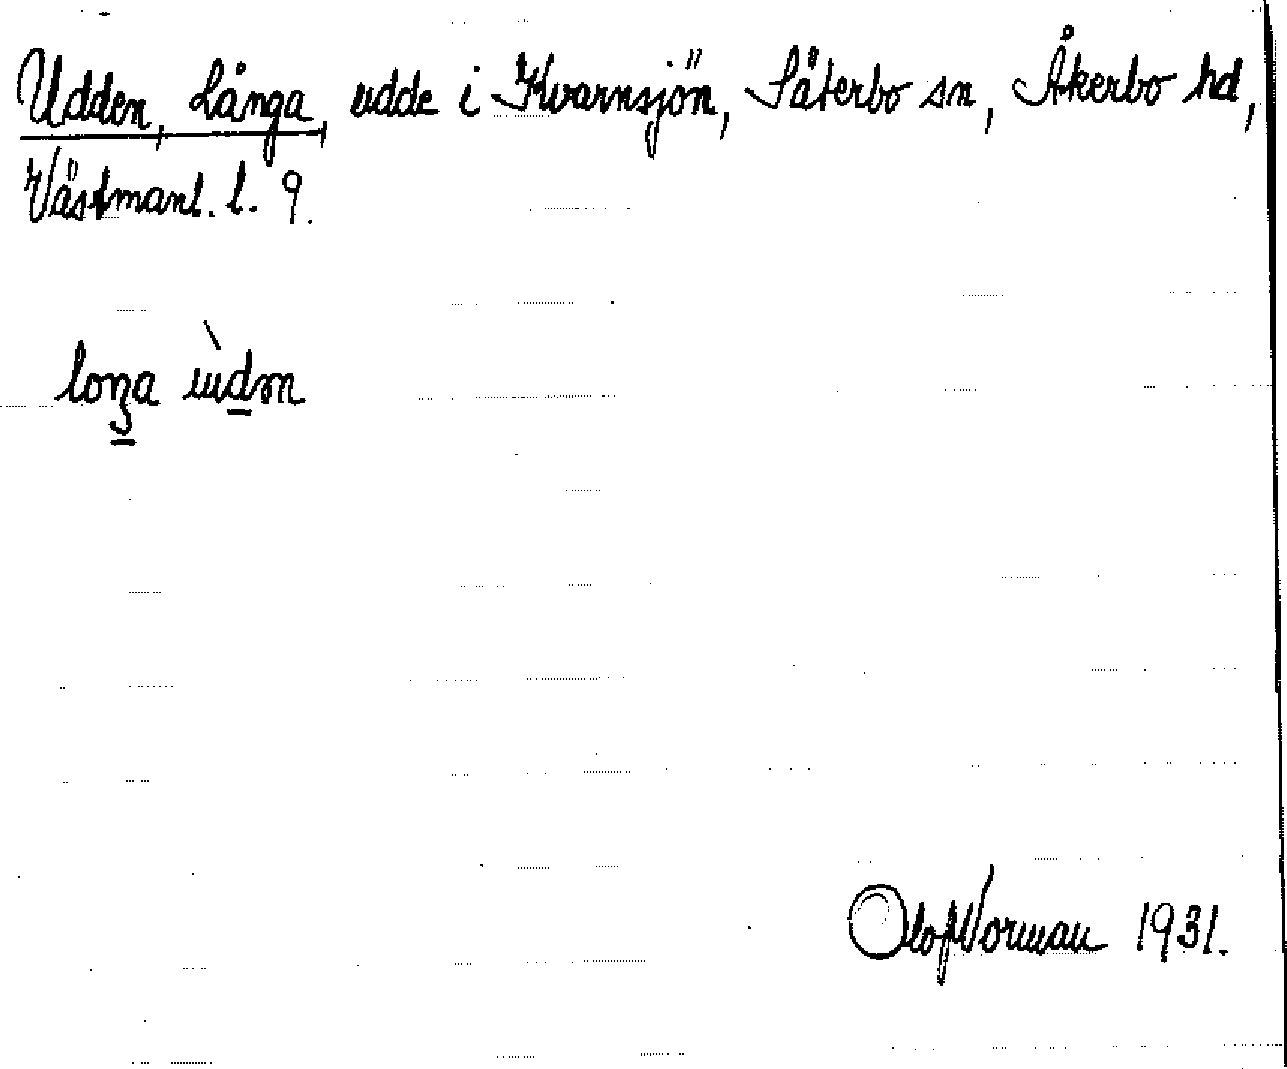 Udden, Långa, udde i Kvarnsjön, Säterbo sn, Åkerbo hd,
Västmanl. l. 9.
loŋa ùdən
Olof Norman 1931.